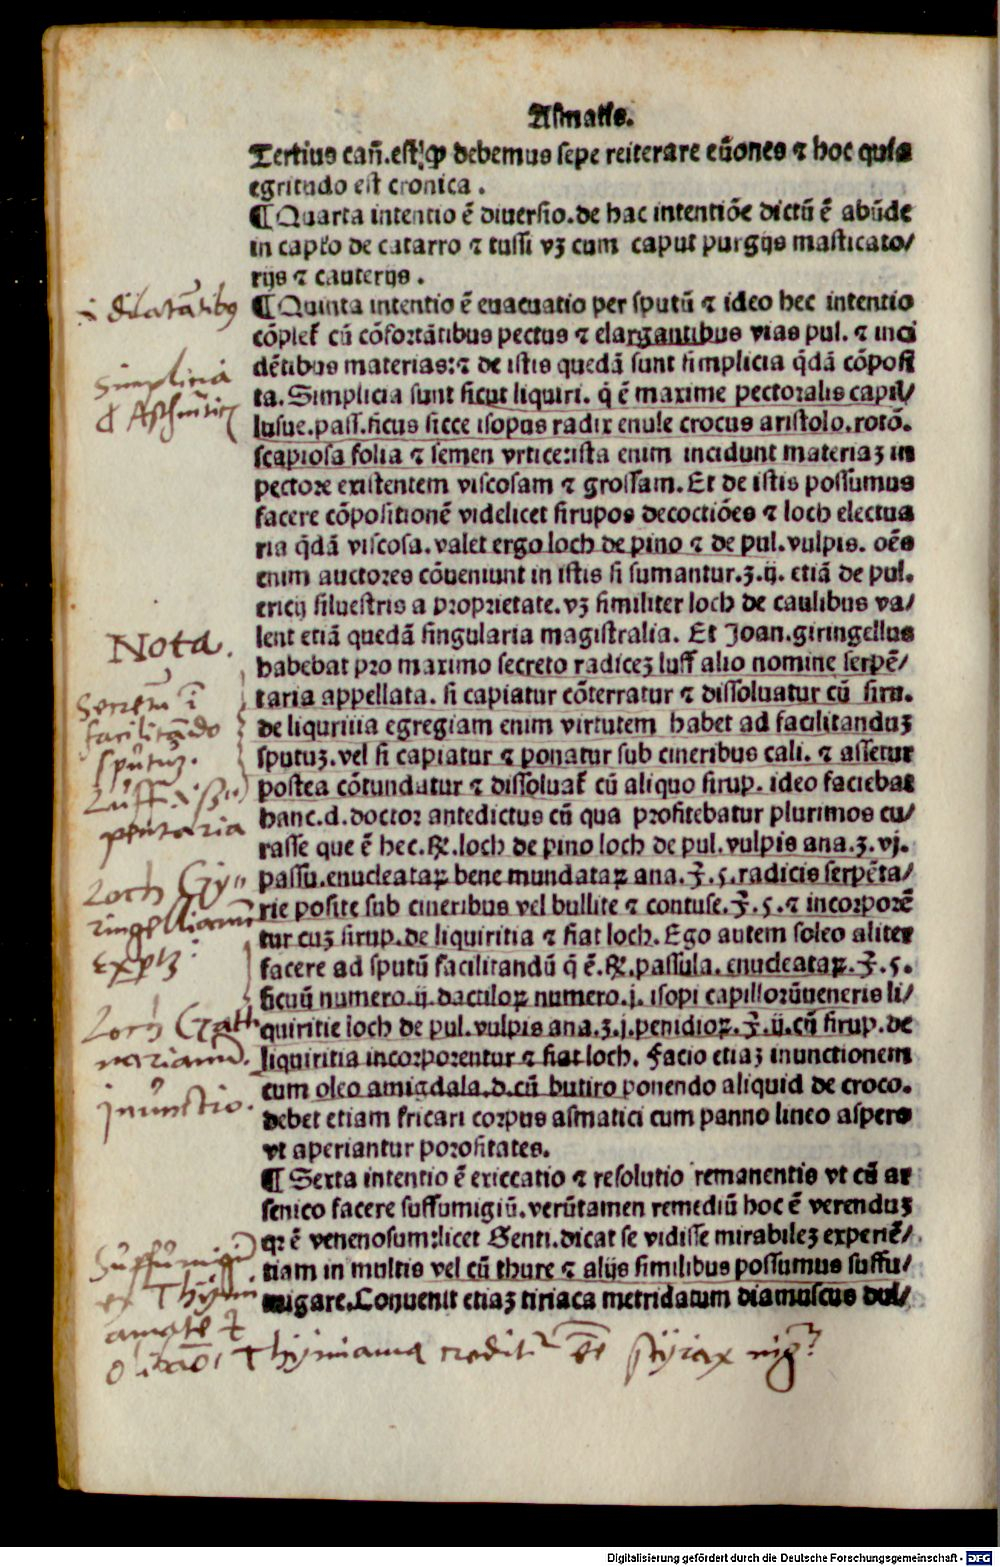 Asmatis.
Tertius cañ. est: ꝙ debemus sepe reiterare eūones ⁊ hoc quia
egritudo est cronica.
¶ Quarta intentio ē diuersio. de hac intentiōe dictū ē abūde
in capło de catarro ⁊ tussi vꝫ cum caput purgijs masticato/
rijs ⁊ cauterijs.
¶ Quinta intentio ē euacuatio per sputū ⁊ ideo hec intentio
cōplet̄ cū cōfortātibus pectus ⁊ elargantibus vias pul. ⁊ inci
dētibus materias: ⁊ de istis quedā sunt simplicia q̄dā cōposi
ta. Simplicia sunt sicut liquiri. q̄ ē maxime pectoralis capil/
lusue. pass. ficus sicce isopus radix enule crocus aristolo. rotō.
scapiosa folia ⁊ semen vrtice: ista enim incidunt materiaꝫ in
pectore existentem viscosam ⁊ grossam. Et de istis possumus
facere cōpositionē videlicet sirupos decoctiōes ⁊ loch electua
ria q̄dā viscosa. valet ergo loch de pino ⁊ de pul. vulpis. oēs
enim auctores cōueniunt in istis si sumantur. ʒ. ij. etiā de pul.
ericij siluestris a proprietate. vꝫ similiter loch de caulibus va/
lent etiā quedā singularia magistralia. Et Joan. giringellus
habebat pro maximo secreto radiceꝫ luff alio nomine serpē/
taria appellata. si capiatur cōterratur ⁊ dissoluatur cū siru.
de liquritia egregiam enim virtutem habet ad facilitanduꝫ
sputuꝫ. vel si capiatur ⁊ ponatur sub cineribus cali. ⁊ assetur
postea cōtundatur ⁊ dissoluat̄ cū aliquo sirup. ideo faciebat
hanc. d. doctor antedictus cū qua profitebatur plurimos cu/
rasse que ē hec. ℞. loch de pino loch de pul. vulpis ana. ʒ. vj.
passu. enucleataꝝ bene mundataꝝ ana. ℥. ꜱ. radicis serpēta/
rie posite sub cineribus vel bullite ⁊ contuse. ℥. ꜱ. ⁊ incorporē
tur cuꝫ sirup. de liquiritia ⁊ fiat loch. Ego autem soleo aliter
facere ad sputū facilitandū q̄ ē. ℞. passula. enucleataꝝ. ℥. ꜱ.
ficuū numero. ij. dactiloꝝ numero. j. isopi capillorūueneris li/
quiritie loch de pul. vulpis ana. ʒ. j. penidioꝝ. ℥. ij. cū sirup. de
liquiritia incorporentur ⁊ fiat loch. Facio etiaꝫ inunctionem
cum oleo amigdala. d. cū butiro ponendo aliquid de croco.
debet etiam fricari corpus asmatici cum panno lineo aspero
vt aperiantur porositates.
¶ Sexta intentio ē exiccatio ⁊ resolutio remanentis vt cū ar
senico facere suffumigiū. verūtamen remediū hoc ē verenduꝫ
qꝛ ē venenosum: licet Genti. dicat se vidisse mirabileꝫ experiē/
tiam in multis vel cū thure ⁊ alijs similibus possumus suffu/
migare. Conuenit etiaꝫ tiriaca metridatum diamuscus dul/
i dilatātibꝰ
Simplicia
Nota.
Secretū ī
facilitādo
sputuꝫ.
Luff. i. Ser
pentaria
Loch Gy
ringellianū
exptū:
Loch Gatt
narianū.
jnūnctio.
Suffumigiū
ex Thymi
amate ⁊
olibāo, Thymiama creditꝛ ēē styrax nigꝛ
Digitalisierung gefördert durch die Deutsche Forschungsgemeinschaft - DFG